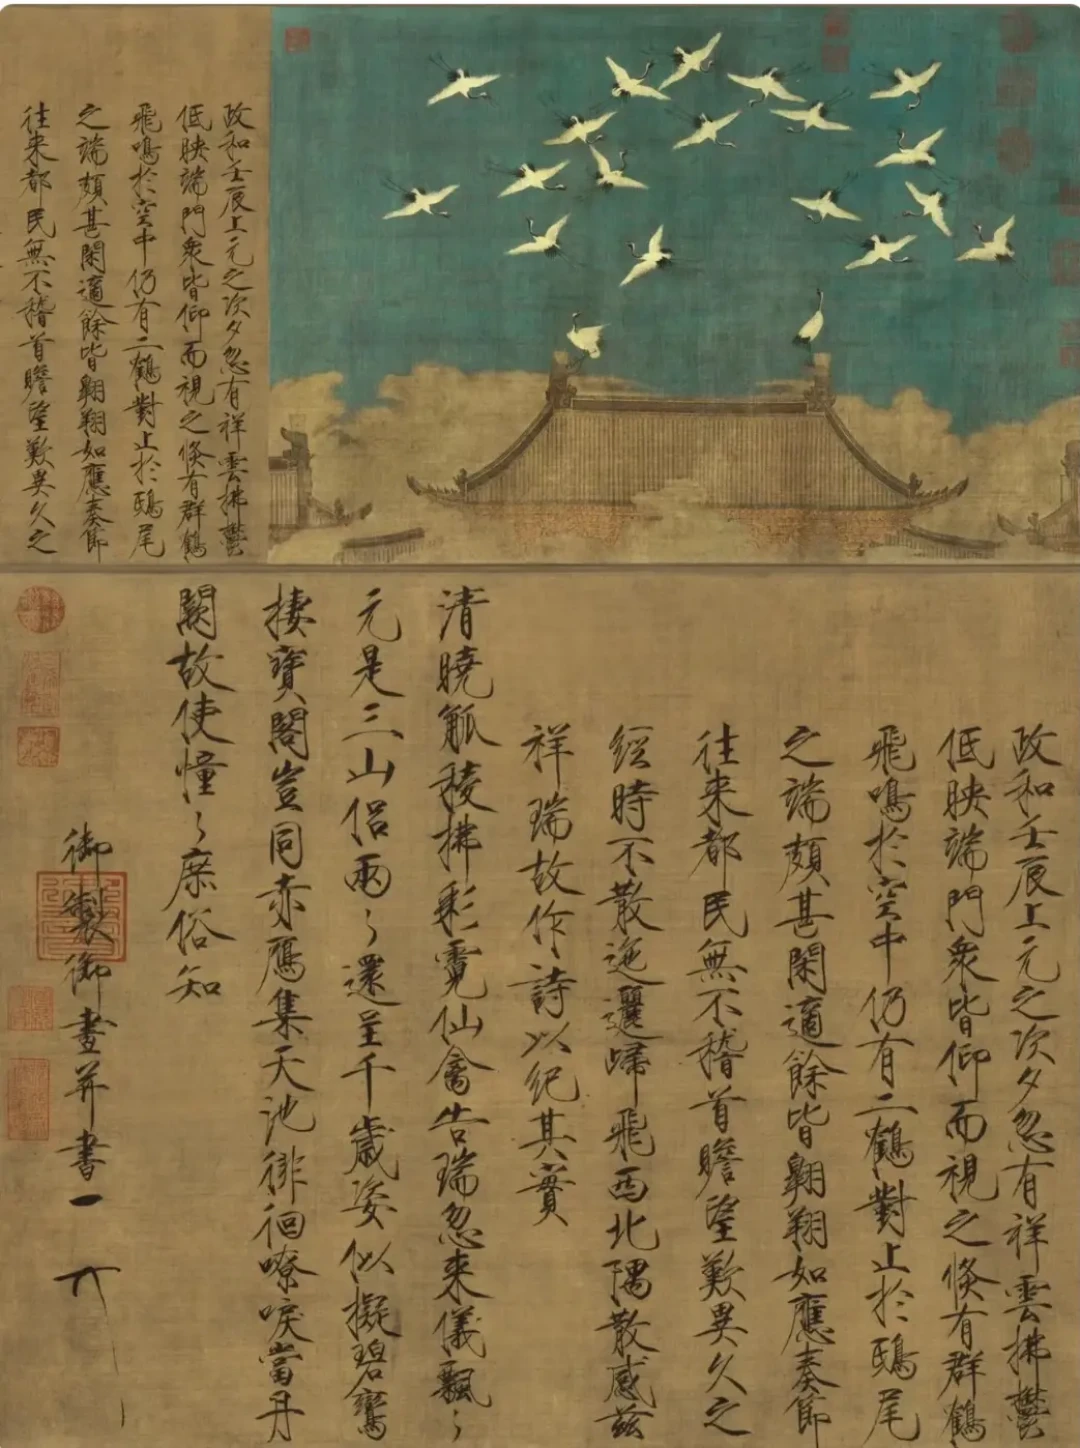 政和壬辰上元之次夕忽有祥雲拂鬱
低映端門衆皆仰而視之倏有群鶴
飛鳴於空中仍有二鶴對止於鴟尾
之端頗甚閑適餘皆翱翔如應奏節
往来都民無不稽首瞻望歎異久之
政和壬辰上元之次夕忽有祥雲拂鬱
低映端門衆皆仰而視之倏有群鶴
飛鳴於空中仍有二鶴對止於鴟尾
之端頗甚閑適餘皆翱翔如應奏節
往来都民無不稽首瞻望歎異久之
經時不散迤邐歸飛西北隅散感茲
祥瑞故作詩以紀其實
清曉觚稜拂彩霓仙禽告瑞忽来儀飄〻
元是三山侶兩〻還呈千歲姿似擬碧鸞
棲寶閣豈同赤鴈集天池徘徊嘹唳當丹
闕故使憧〻庶俗知
御製御畫并書